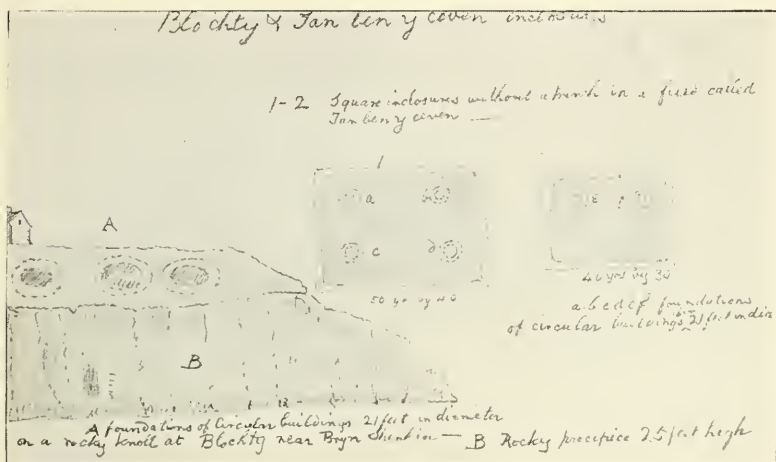 Blochty & Tan ben y coven inclosures
1-2 Square inclosures without a trench in a field called
Tan ben y ceven —
1
a
c d
50 yds by 40
e
40 yds by 30
A
B
a b c d e f foundations
of circular buildings 21 feet in diam
A foundations of Circular buildings 21 feet in diameter
on a rocky knoll at Blockty near Bryn Shenkin — B Rocky precipice 25 feet high